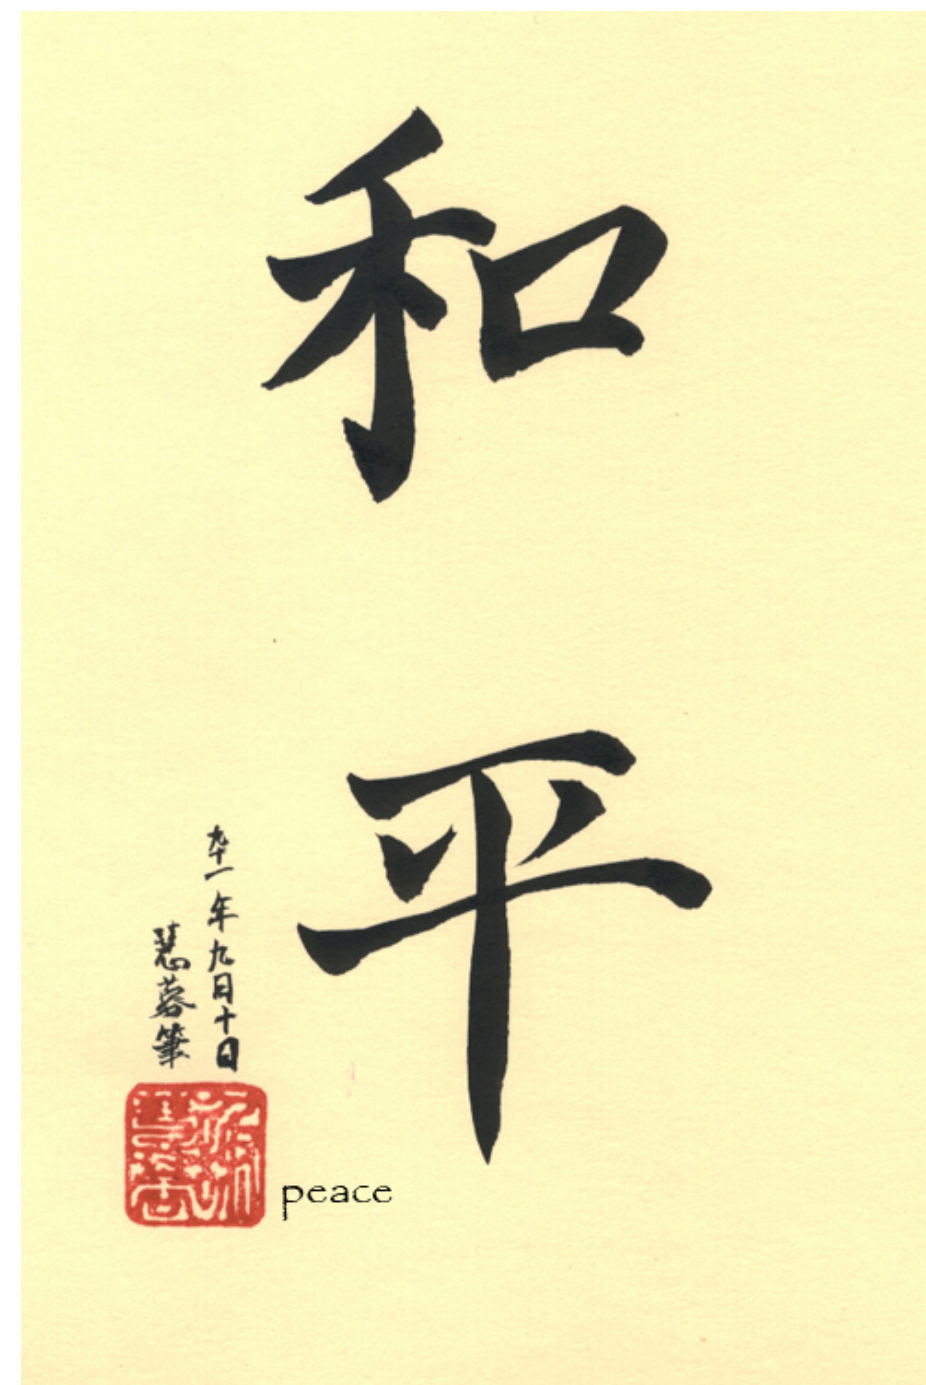 和
平
九十一年九月十日
慧蓉筆
peace